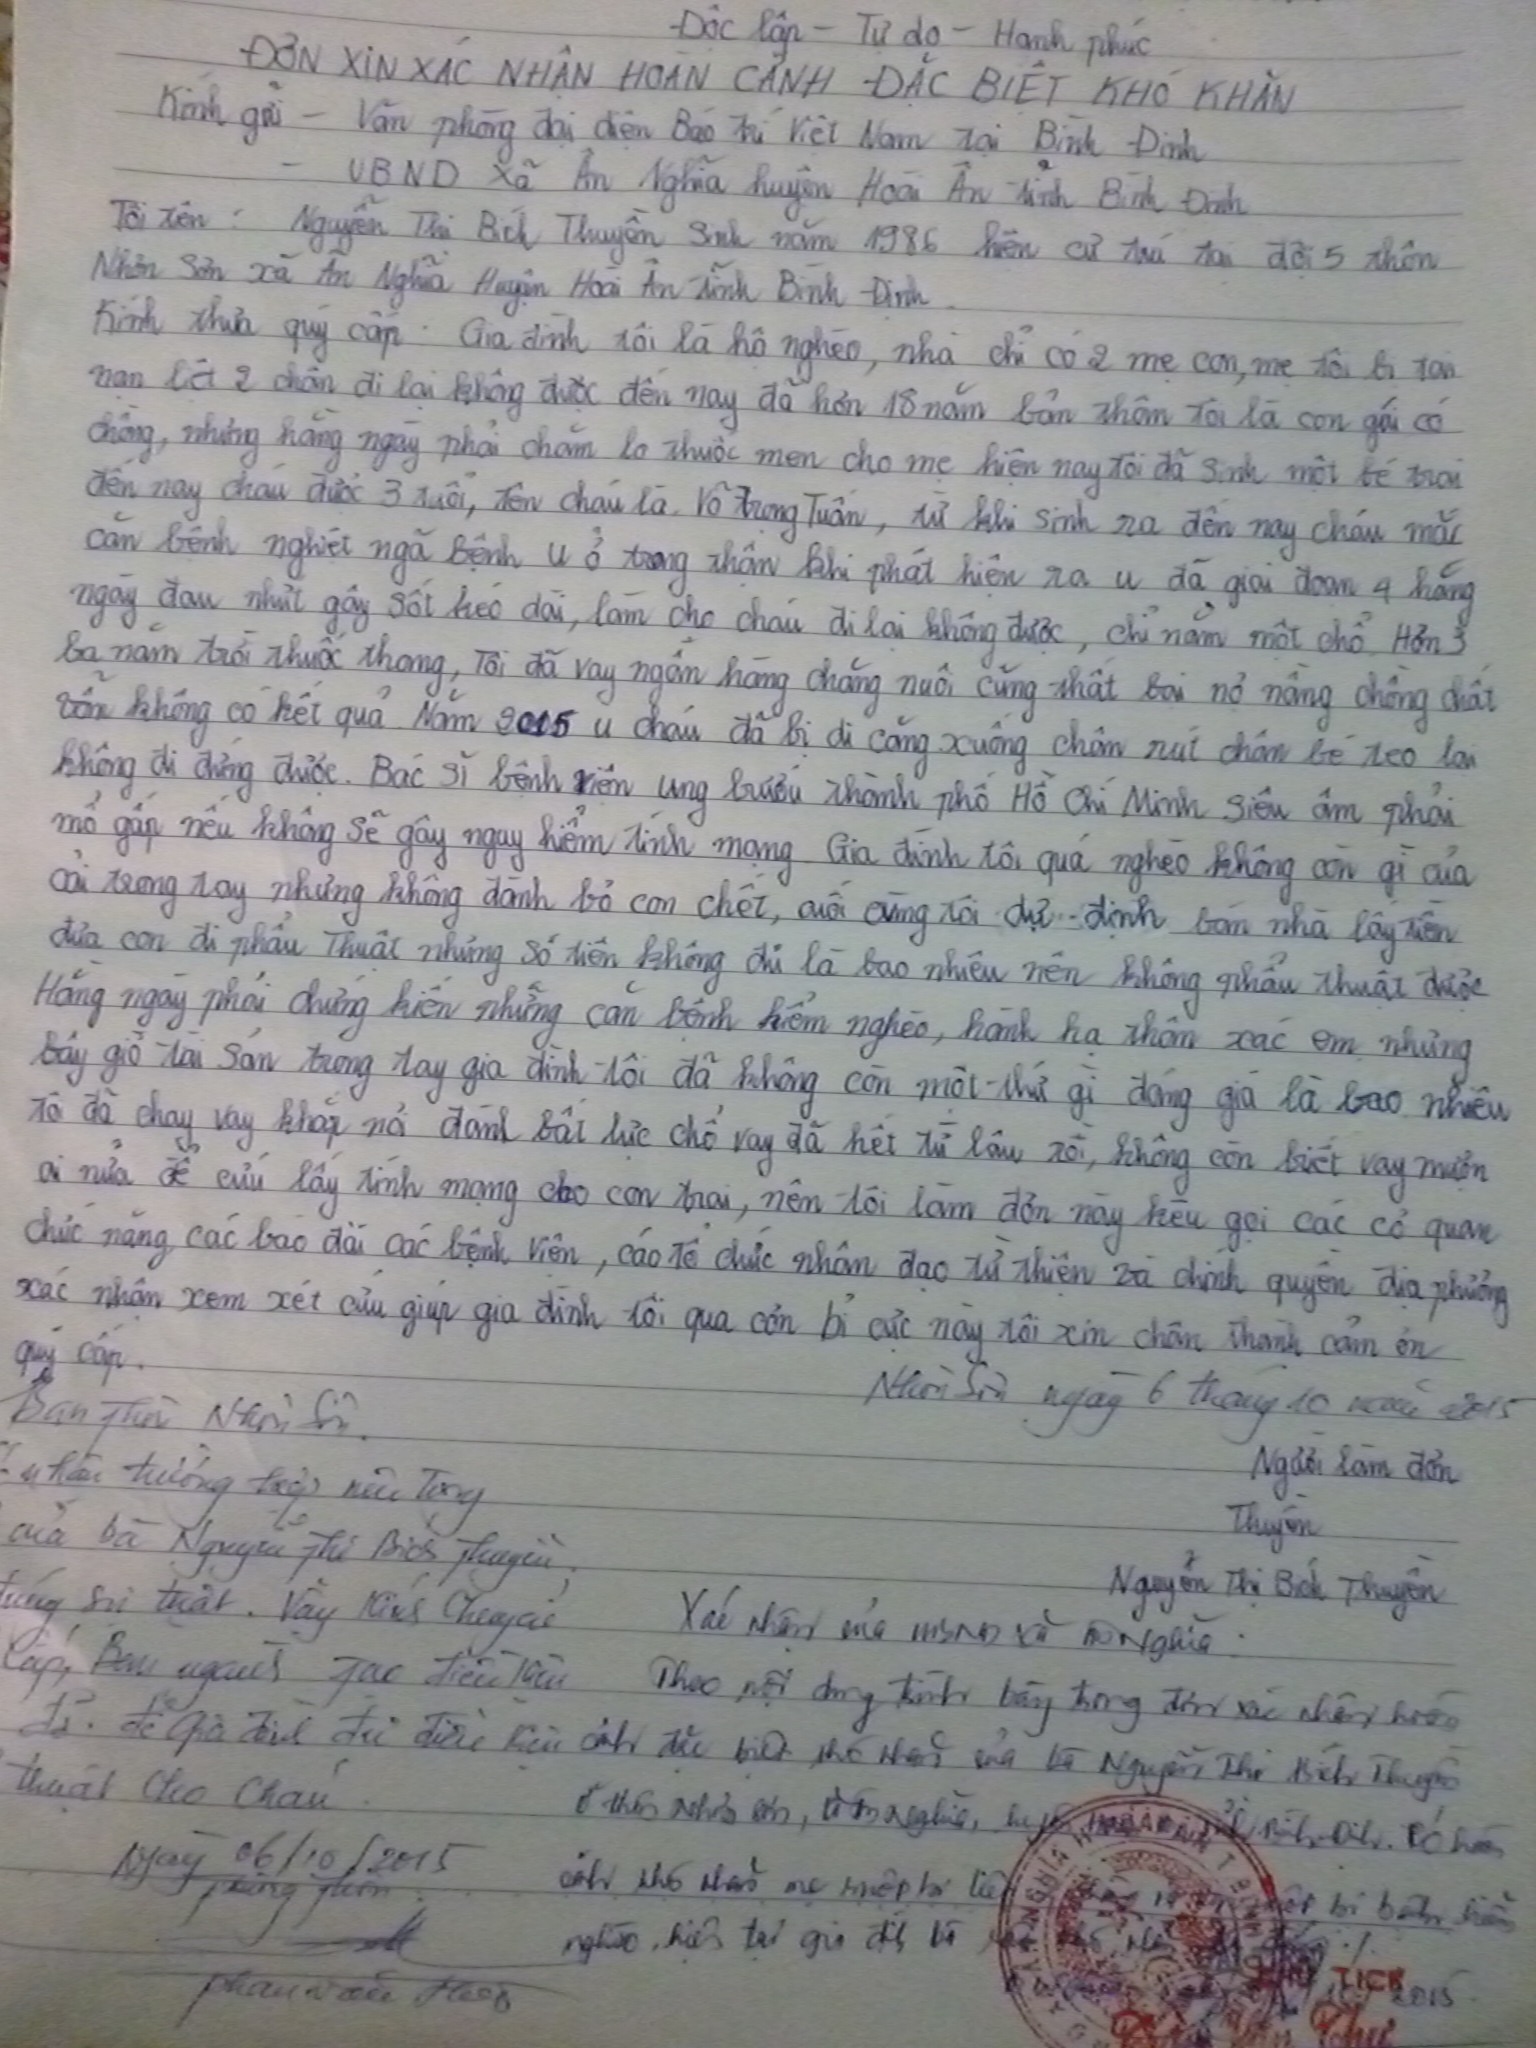 Độc lập - Tự do - Hạnh phúc
ĐƠN XIN XÁC NHẬN HOÀN CẢNH ĐẶC BIỆT KHÓ KHĂN
Kính gửi - Văn phòng đại diện Báo trí Việt Nam tại Bình Định
- UBND Xã Ân Nghĩa huyện Hoài Ân tỉnh Bình Định
Tôi tên: Nguyễn Thị Bích Thuyền Sinh năm 1986 hiện cư trú tại đội 5 thôn
Nhơn Sơn xã Ân Nghĩa Huyện Hoài Ân tỉnh Bình Định.
Kính thưa quý cấp: Gia đình tôi là hộ nghèo, nhà chỉ có 2 mẹ con, mẹ tôi bị tai
nạn liệt 2 chân đi lại không được đến nay đã hơn 18 năm bản thân tôi là con gái có
chồng, nhưng hằng ngày phải chăm lo thuốc men cho mẹ hiện nay tôi đã sinh một bé trai
đến nay cháu được 3 tuổi, tên cháu là Võ Trọng Tuấn, từ khi sinh ra đến nay cháu mắc
căn bệnh nghiệt ngã bệnh u ở trong thận khi phát hiện ra u đã giai đoạn 4 hằng
ngày đau nhứt gây sốt kéo dài, làm cho cháu đi lại không được, chỉ nằm một chổ. Hơn 3
ba năm trời thuốc thang, Tôi đã vay ngân hàng chăng nuôi cũng thất bại nợ nầng chồng chất
vẫn không có kết quả. Năm 2015 u cháu đã bị di căng xuống chân rút chân bé teo lại
không đi đứng được. Bác sĩ bệnh viện ung bướu thành phố Hồ Chí Minh siêu âm phải
mổ gấp nếu không sẽ gây nguy hiểm tính mạng. Gia đình tôi quá nghèo không còn gì của
cải trong tay nhưng không đành bỏ con chết, cuối cùng tôi dự định bán nhà lấy tiền
đưa con đi phẩu Thuật nhưng số tiền không đủ là bao nhiêu nên không phẩu thuật được
Hằng ngày phải chứng kiến những căn bệnh hiểm nghèo, hành hạ thân xác em nhưng
bây giờ tài sản trong tay gia đình tôi đã không còn một thứ gì đáng giá là bao nhiêu
tô đã chạy vay khắp nơi đành bất lực chổ vay đã hết từ lâu rồi, không còn biết vay mượn
ai nửa để cứu lấy tính mạng cho con trai, nên tôi làm đơn này kêu gọi các cơ quan
chức năng các báo đài các bệnh viện, các tổ chức nhân đạo từ thiện và chính quyền địa phương
xác nhận xem xét cứu giúp gia đình tôi qua cơn bỉ cực này tôi xin chân thành cảm ơn
quý cấp.
Nhơn Sơn ngày 6 tháng 10 năm 2015
Ban thôn Nhơn Sơn.
Người làm đơn
trường hợp nêu trong
Thuyền
của bà Nguyễn Thị Bích Thuyền.
Nguyễn Thị Bích Thuyền
đúng sự thật. Vậy Kính Chuyển
Xác nhận của UBND xã Ân Nghĩa:
Cấp, Ban ngành tạo điều kiện
Theo nội dung trình bày trong đơn xác nhận hoàn
đở. để Gia đình đủ điều kiện
cảnh đặc biệt khó khăn của bà Nguyễn Thị Bích Thuyền
thuật Cho Cháu.
ở thôn Nhơn Sơn, xã Ân Nghĩa, Bình Định. Có hoàn
Ngày 06/10/2015
cảnh khó khăn mẹ bị bị bệnh hiểm
trưởng thôn
nghèo, hiện tại gia đình bà
CHỦ TỊCH
2015